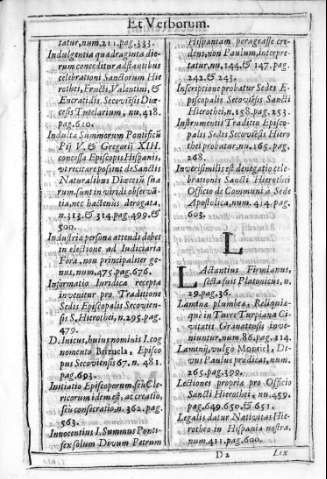 Et Verborum.
tatur, num. 211. pag. 333.
Indulgentia quadraginta die-
rum conceditur adstantibus
celebrationi Sanctorum Hie
rothei, Fructi, Valentini, &
Eucratidis Secoviēsis Diœ
cesis Tutelarium, nu. 418.
pag. 610.
Indulta Summorum Pontificū
Pij V. & Gregorij XIII.
concessa Episcopis Hispanis,
vt recitare possint de Sanctis
Naturalibus Diœcesis sua
rum sunt in viridi observā
tia, nec hactenus derogata,
n. 313. & 314. pag. 499. &
500.
Industria persona attendi debet
in electione ad Iudiciaria
Fora, non principaliter ge-
nus, num. 475. pag. 676.
Informatio Iuridica recepta
invenitur pro Traditione
Sedis Episcopalis Secovien-
sis S. Hierothei, n. 295. pag.
479.
D. Inicus, huius nominis I. cog
nomento Episco
pus Secoviensis 67. n. 481.
pag. 693.
Initiatio Episcoporum, seù Cle-
ricorum idem est, ac creatio,
seù consecratio, n. 362. pag.
563.
Innocentius I. Summus Ponti-
fex solum Divum Petrum
Hispaniam peragrasse cre
dens, non Paulum, interpre-
tatur, nu. 144. & 147. pag.
242. & 243.
Inscriptione probatur Sedes E-
piscopalis Secoviēsis Sancti
Hierothei, n. 158. pag. 253.
Instrumentis Traditio Episco-
palis Sedis Secoviēsis Hiero
thei probatur, nu. 165. pag.
268.
Inverisimilis est denegatio cele-
brationis Sancti Hierothei
Officio de Communi à Sede
Apostolica, num. 414. pag.
603.
L
Lactantius Firmianus,
secta fuit Platonicus, n.
29. pag. 36.
Lamina plumbea, Reliquia-
que in Turre Turpiana Ci-
vitatis Granatensis inve-
niuntur, num. 86. pag. 114.
Laminij, vulgo Di-
vus Paulus prædicat, num.
265. pag. 399.
Lectiones propria pro Officio
Sancti Hierothei, nu. 459.
pag. 649. 650. & 651.
Legalis datur Nativitas Hie-
rothei in Hispania nostra,
num. 411. pag. 600.
D2
Lex